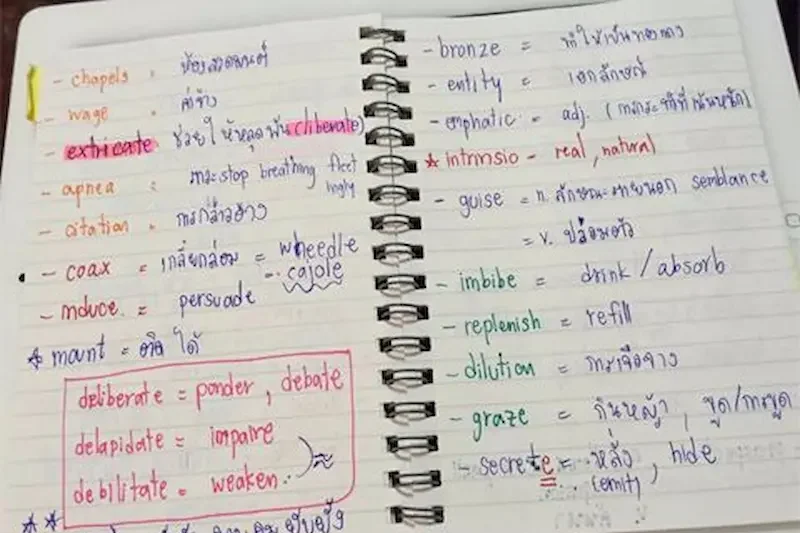 - chapels = ห้องสวดมนต์
- wage = ค่าจ้าง
- extricate ช่วยให้หลุดพ้น (liberate)
- apnea = ภาวะ stop breathing fleet
ingly
- citation = การกล่าวอ้าง
- coax = เกลี้ยกล่อม = wheedle
= cajole
- induce = persuade
☆ mount =
deliberate = ponder, debate
delapidate = impaire
debilitate = weaken
- bronze = ทำให้เป็นทองแดง
- entity = เอกลักษณ์
- emphatic = adj. (การกระทำที่เน้นหนัก)
★ intrinsio - real, natural
- guise = n. ลักษณะภายนอก semblance
= v. ปลอมตัว
- imbibe = drink / absorb
- replenish = refill
- dilution = การเจือจาง
- graze = กินหญ้า, ขูด/การขูด
- secrete = หลั่ง, hide
(emit)